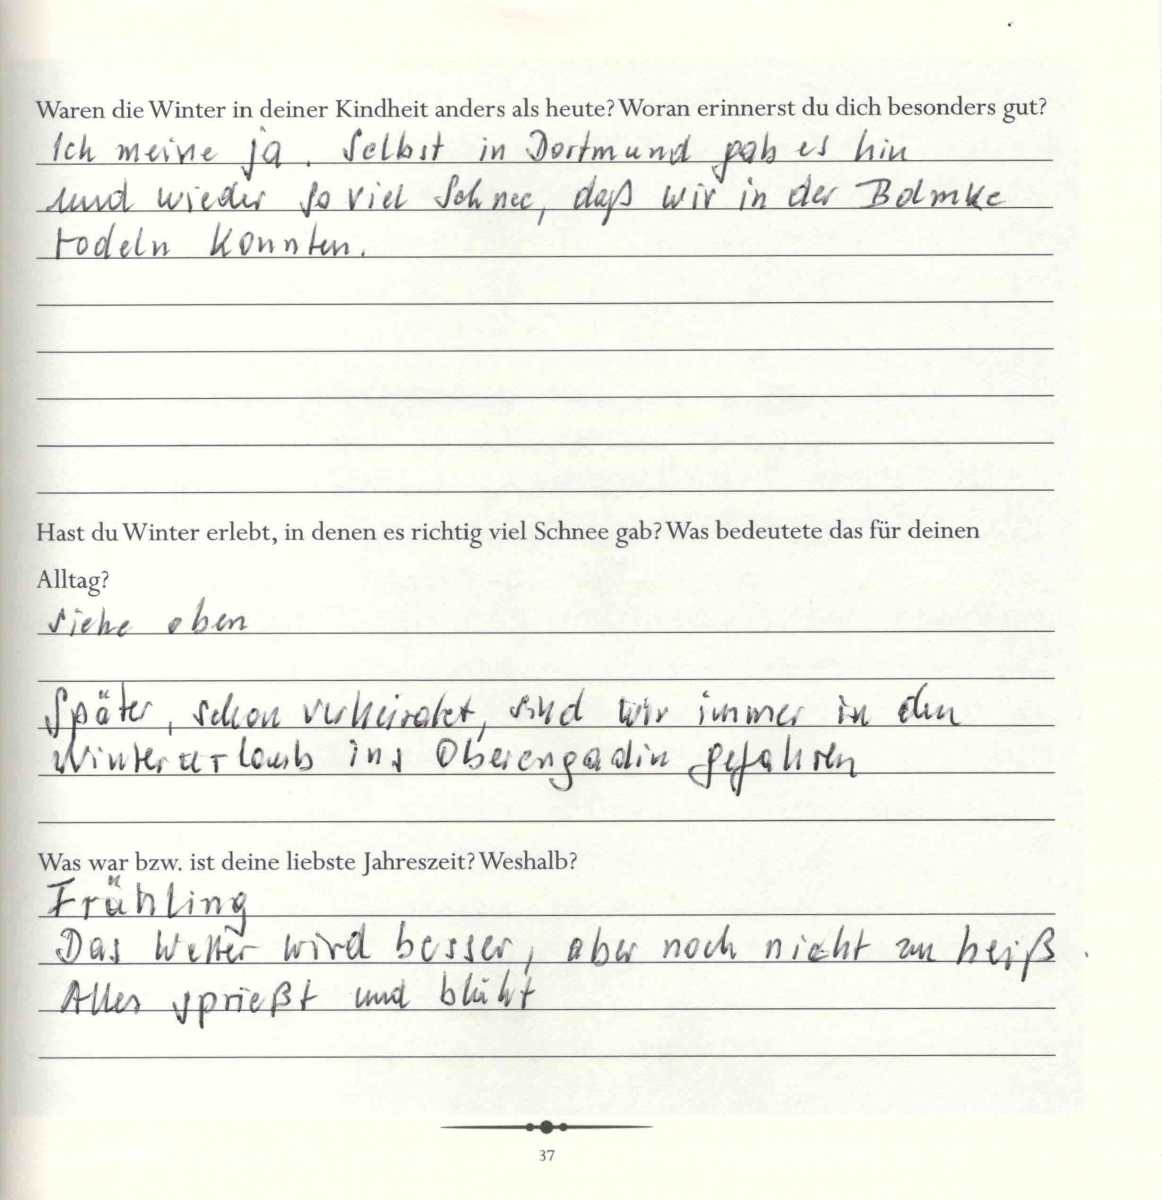 Waren die Winter in deiner Kindheit anders als heute? Woran erinnerst du dich besonders gut?
Ich meine ja. Selbst in Dortmund gab es hin
und wieder so viel Schnee, daß wir in der Bolmke
rodeln konnten.
Hast du Winter erlebt, in denen es richtig viel Schnee gab? Was bedeutete das für deinen
Alltag?
siehe oben
Später, schon verheiratet, sind wir immer in den
Winterurlaub ins Oberengadin gefahren
Was war bzw. ist deine liebste Jahreszeit? Weshalb?
Frühling
Das Wetter wird besser, aber noch nicht zu heiß.
Alles sprießt und blüht
37